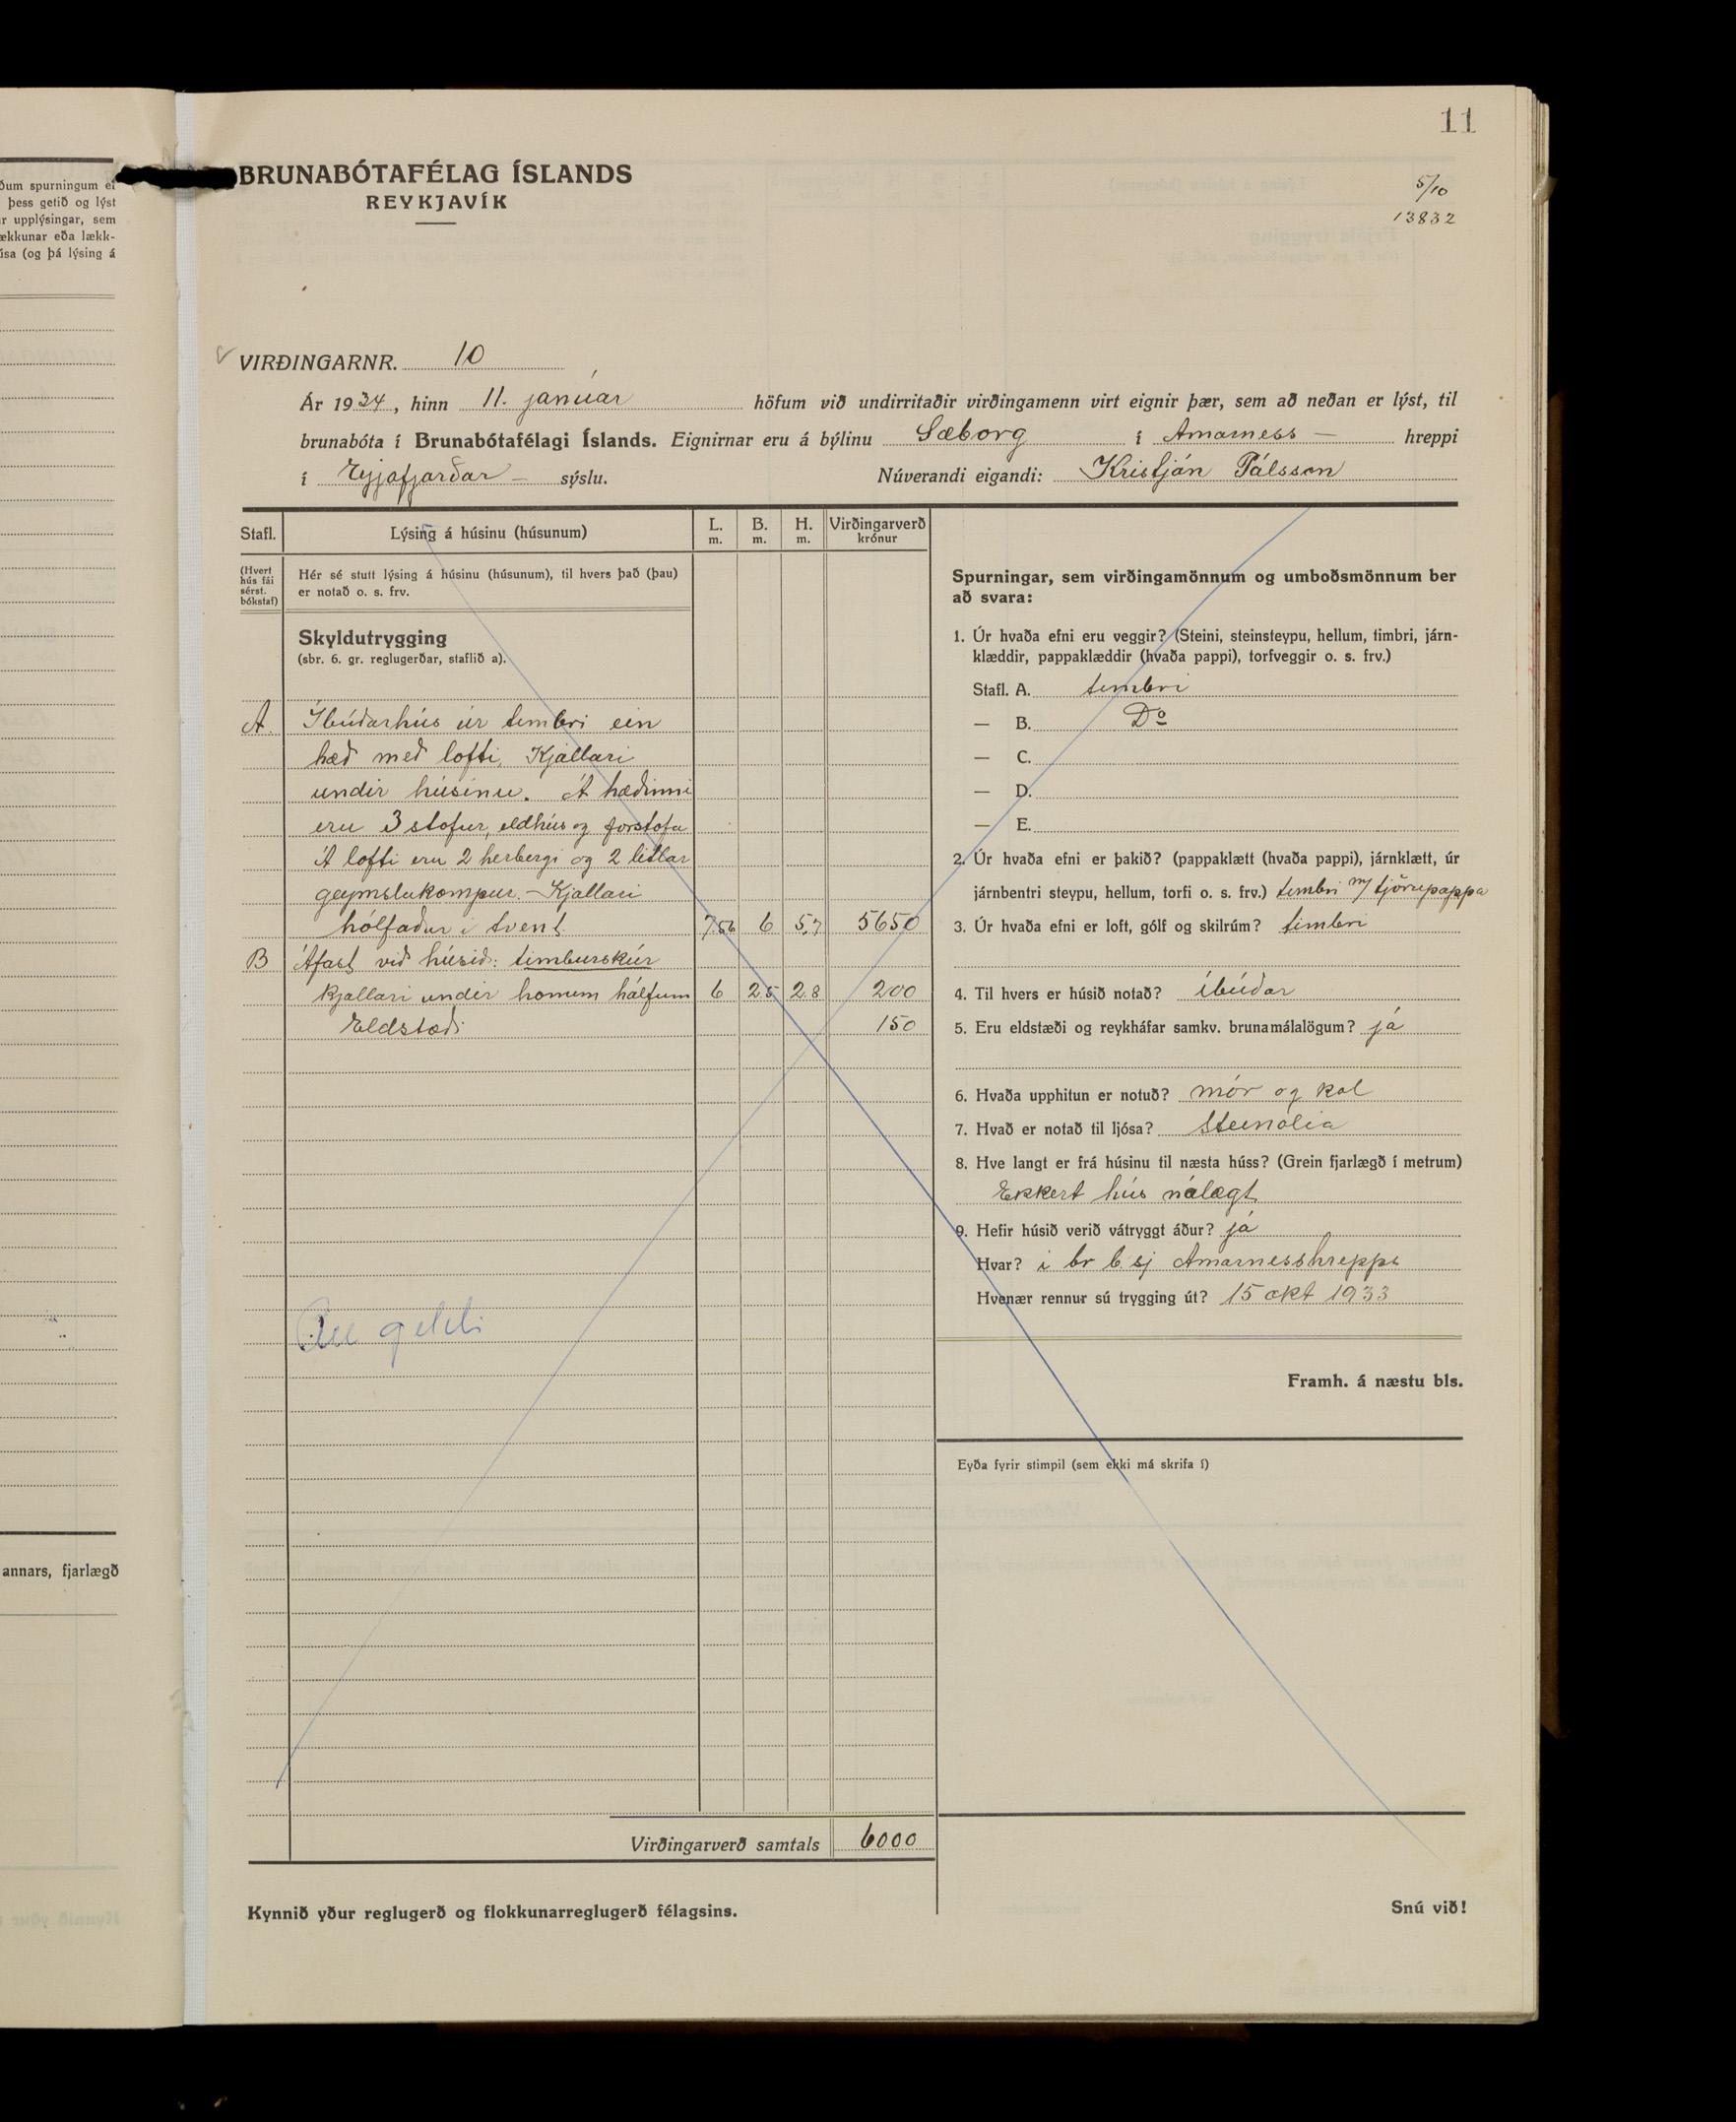 ðum spurningum ef
þess getið og lýst
r upplýsingar, sem
ækkunar eða lækk-
úsa (og þá lýsing á
annars, fjarlægð
11
BRUNABÓTAFÉLAG ÍSLANDS
REYKJAVÍK
5/10
13832
VIRÐINGARNR. 10
Ár 1934, hinn 11. janúar höfum við undirritaðir virðingamenn virt eignir þær, sem að neðan er lýst, til
brunabóta í Brunabótafélagi Íslands. Eignirnar eru á býlinu Sæborg í Arnarness- hreppi
í Eyjafjarðar- sýslu. Núverandi eigandi: Kristján Pálsson
Stafl. Lýsing á húsinu (húsunum) L. m. B. m. H. m. Virðingarverð krónur
(Hvert hús fái sérst. bókstaf)
Hér sé stutt lýsing á húsinu (húsunum), til hvers það (þau)
er notað o. s. frv.
Skyldutrygging
(sbr. 6. gr. reglugerðar, staflið a).
A. Íbúðarhús úr timbri ein
hæð með lofti, Kjallari
undir húsinu. Á hæðinni
eru 3 stofur, eldhús og forstofa
Á lofti eru 2 herbergi og 2 litlar
geymslukompur. - Kjallari
hólfaður í tvent. 7.56 6 5,7 5650
B Áfast við húsið: timburskúr
kjallari undir honum hálfum 6 2.5 2.8 200
Eldstæði 150
Úr gildi
Virðingarverð samtals 6000
Kynnið yður reglugerð og flokkunarreglugerð félagsins.
Spurningar, sem virðingamönnum og umboðsmönnum ber
að svara:
1. Úr hvaða efni eru veggir? (Steini, steinsteypu, hellum, timbri, járn-
klæddir, pappaklæddir (hvaða pappi), torfveggir o. s. frv.)
Stafl. A. timbri
— B. Do
— C.
— D.
— E.
2. Úr hvaða efni er þakið? (pappaklætt (hvaða pappi), járnklætt, úr
járnbentri steypu, hellum, torfi o. s. frv.) timbri m/ tjörupappa
3. Úr hvaða efni er loft, gólf og skilrúm? timbri
4. Til hvers er húsið notað? íbúðar
5. Eru eldstæði og reykháfar samkv. brunamálalögum? já
6. Hvaða upphitun er notuð? mór og kol
7. Hvað er notað til ljósa? Steinolía
8. Hve langt er frá húsinu til næsta húss? (Grein fjarlægð í metrum)
Ekkert hús nálægt
9. Hefir húsið verið vátryggt áður? já
Hvar? í br b sj Arnarnesshrepps
Hvenær rennur sú trygging út? 15 okt 1933
Framh. á næstu bls.
Eyða fyrir stimpil (sem ekki má skrifa í)
Snú við!